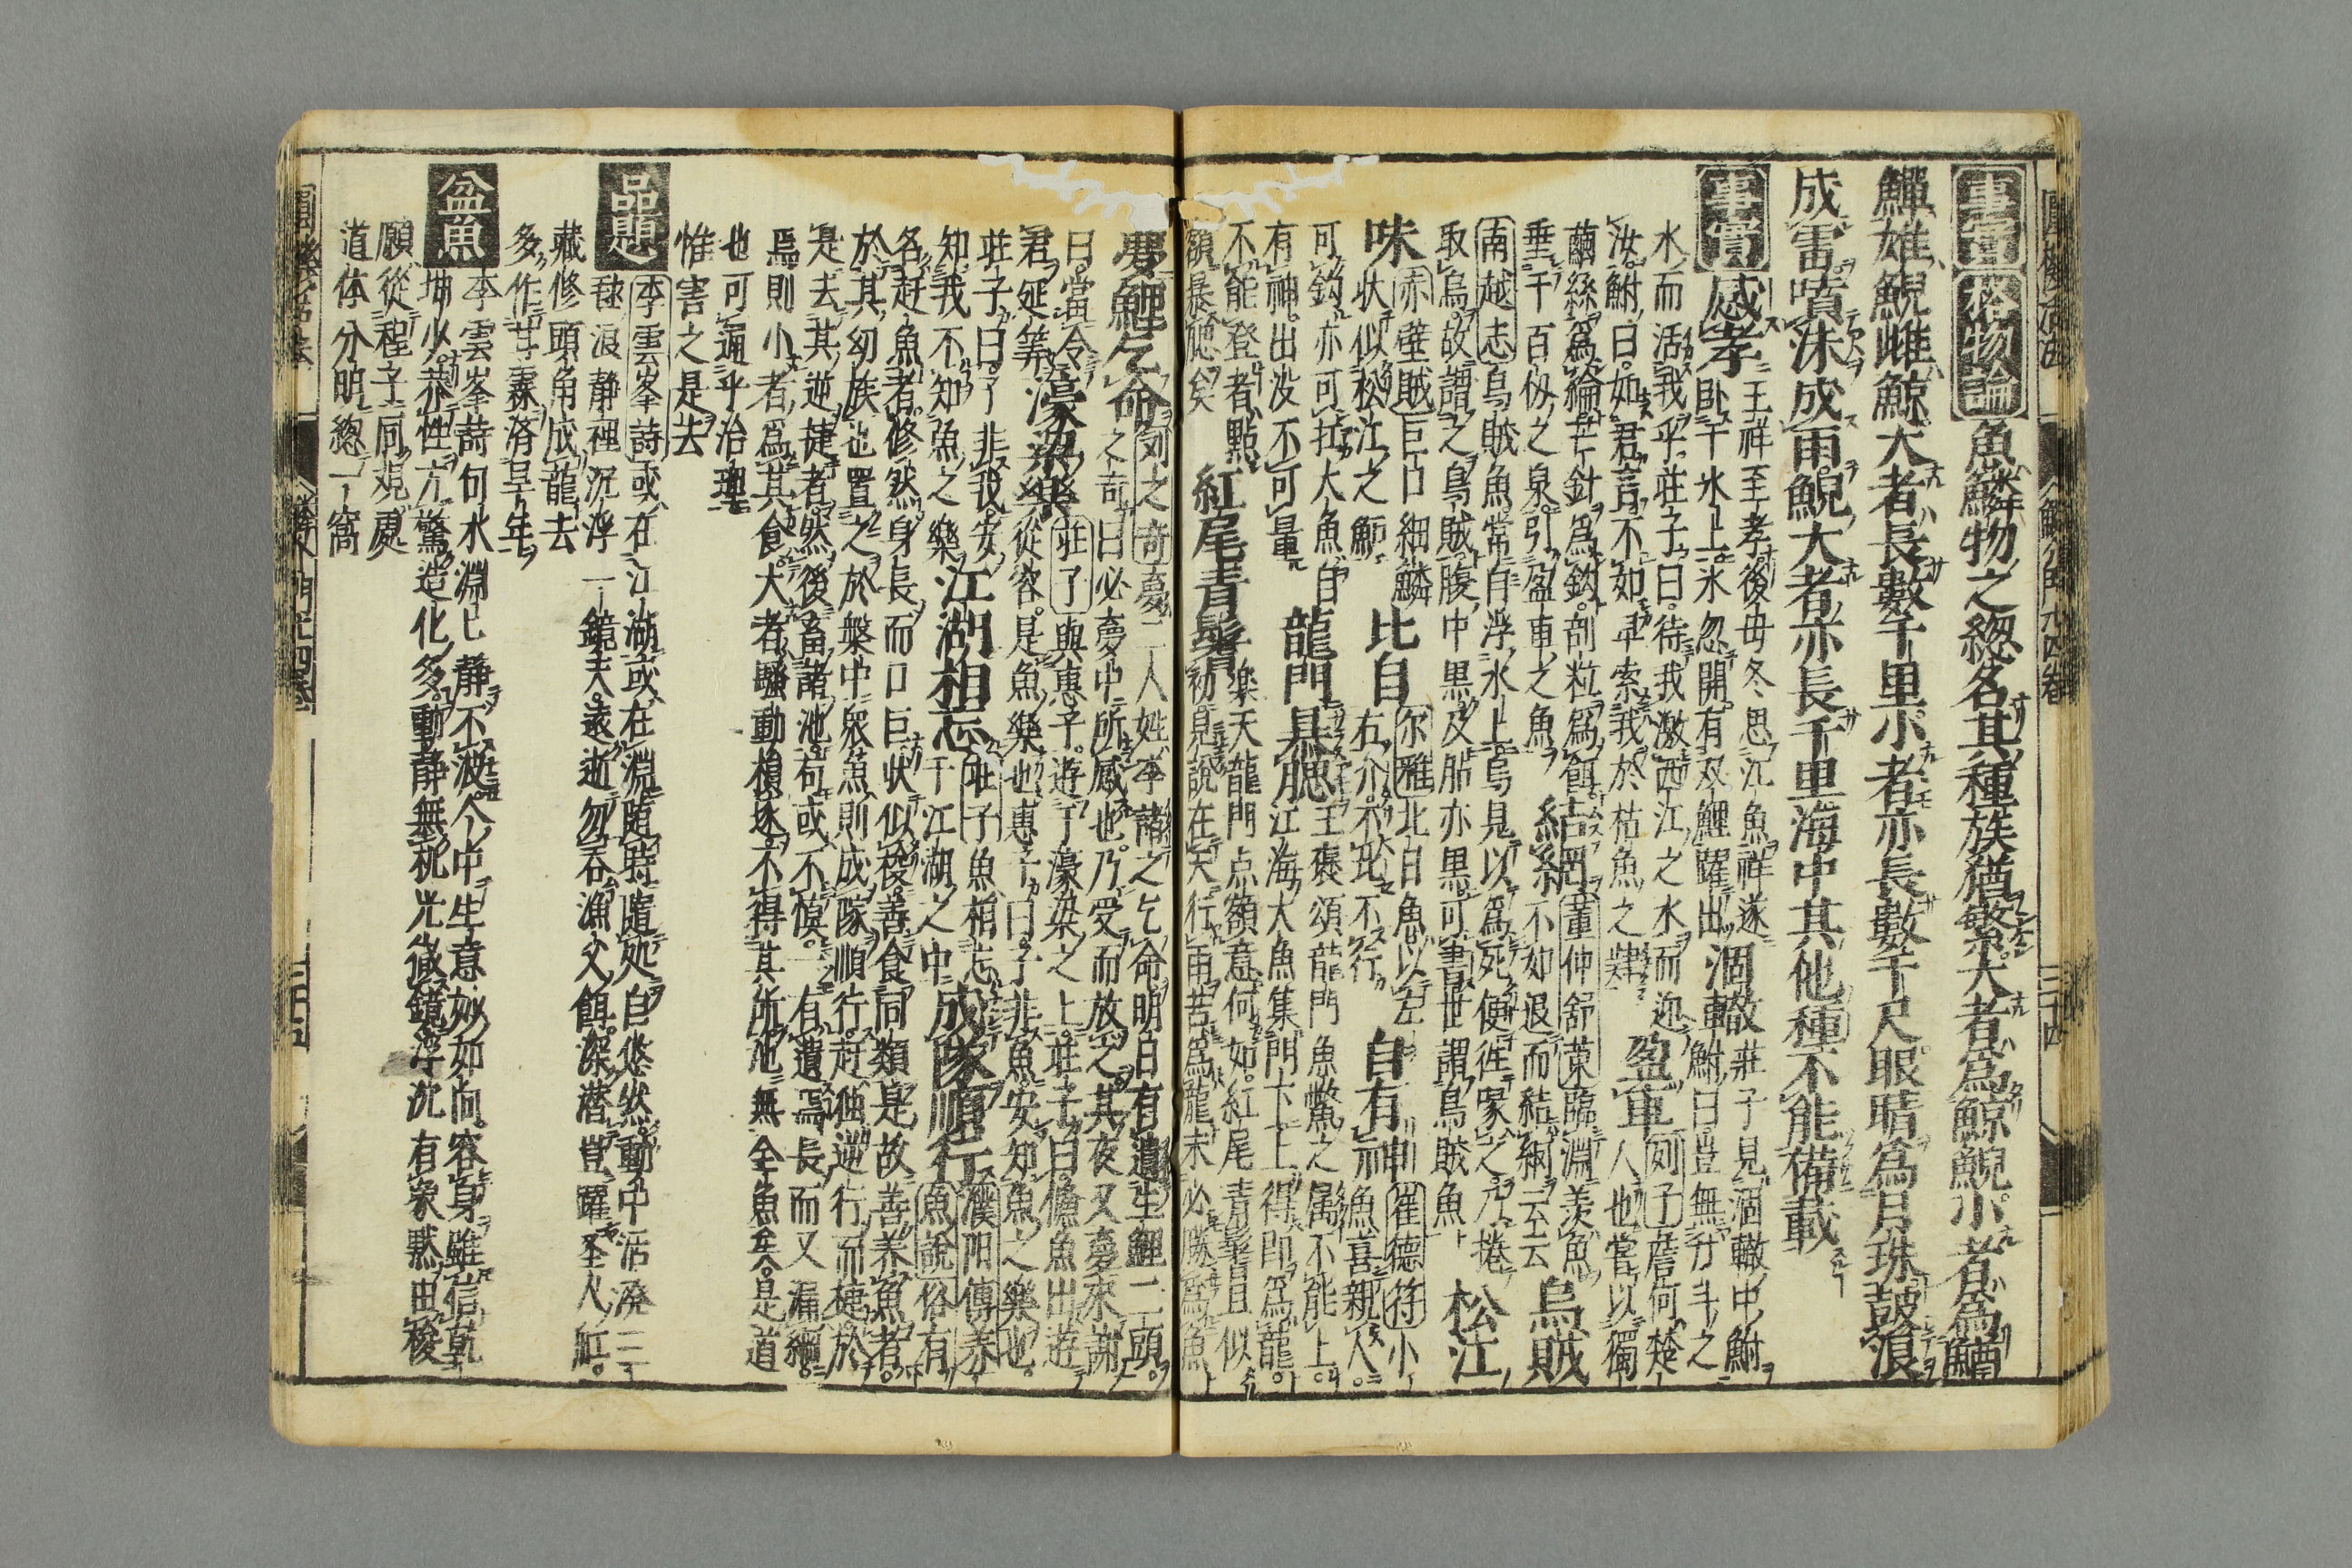 圓機活法 鱗介門九四卷 三十四
事實 格物論 魚鱗物之總名其種族猶繁大者爲鯨鯢小者爲鰌
鱓雄鯢雌鯨大者長數千里小者亦長數千尺眼晴爲月珠鼓浪
成雷噴沫成雨鯢大者亦長千里海中其他種不能備載
事實 感孝 王祥至孝後母冬思江魚祥遂
卧于氷上。氷忽開有双鯉躍出
涸轍 莊子見涸轍中鮒
車鮒曰豈無升斗之
水而活我乎莊子曰。待我激西江之水而迎
汝鮒曰。如君言不如早索我於枯魚之肆
盈車 列子詹何楚
人也嘗以獨
繭絲爲綸芒針爲鈎。剖粒爲餌。
垂千百仭之泉。引盈車之魚
結網 董仲舒策臨淵羨魚
不如退而結網云云
烏賊
南越志烏賊魚常自浮水上。烏見以爲死便徃啄之乃捲
取烏。故謂之烏賊腹中黒及肭亦黒可書世謂烏賊魚
松江
味 赤壁賊巨口細鱗
状似松江之鱸
比目 尔雅北目魚以左
右介不比不行
自有神 崔德符小
魚喜親人。
可鈎亦可拉大魚自
有神。出没不可量
龍門暴腮 王褒頌龍門魚鱉之属不能上。
江海大魚集門下上得即爲龍。
不能登者點
額暴腮矣
紅尾青鬐 樂天龍門点額意何如。紅尾青鬐且似
初見說在天行雨苦爲龍未必勝爲魚
夢鯉乞命 列之奇夢二人姓李諸之乞命明日有遺生鯉二頭。
之奇曰必夢中所感也。乃受而放之其夜又夢來謝
曰。當令
君延筭
濠梁樂 莊子與惠子。遊于濠梁之上。莊子曰。儵魚出遊
從容。是魚樂也惠子曰。子非魚安知魚之樂也
莊子曰。子非我安
知我不知魚之樂
江湖相忘 莊子魚相忘
于江湖之中
成隊順行 濮阳傳养
魚說俗有
名赶魚者。修然身長而口巨状似梭。善食同類是故善养魚者。
於其幼族也置之於槃中衆魚則成隊順行。赶獨逆行而捷於
是去其逆捷者。然後畜諸池。苟或不慎。一有遺焉長而又漏網。
焉則小者爲其食。大者騷動損逐不得其所。池無全魚矣。是道
也可通乎治理
惟害之是去
品題 李雲峯詩或在江湖或在淵隨時隨処自悠然。動中活潑三
毬浪静裡沉浮一鏡天。遠逝勿呑漁父餌。深潜豈躍圣人舡。
藏修頭角成龍去
多作甘霖済旱年
盆魚 李雲峯詩句水淵已静不波个中生意妙如何。容身雖信乾
坤少。恭性亢驚造化多動静無机光徹鏡浮沉有象黙由梭
願從程子同観處
道体分明總一窩